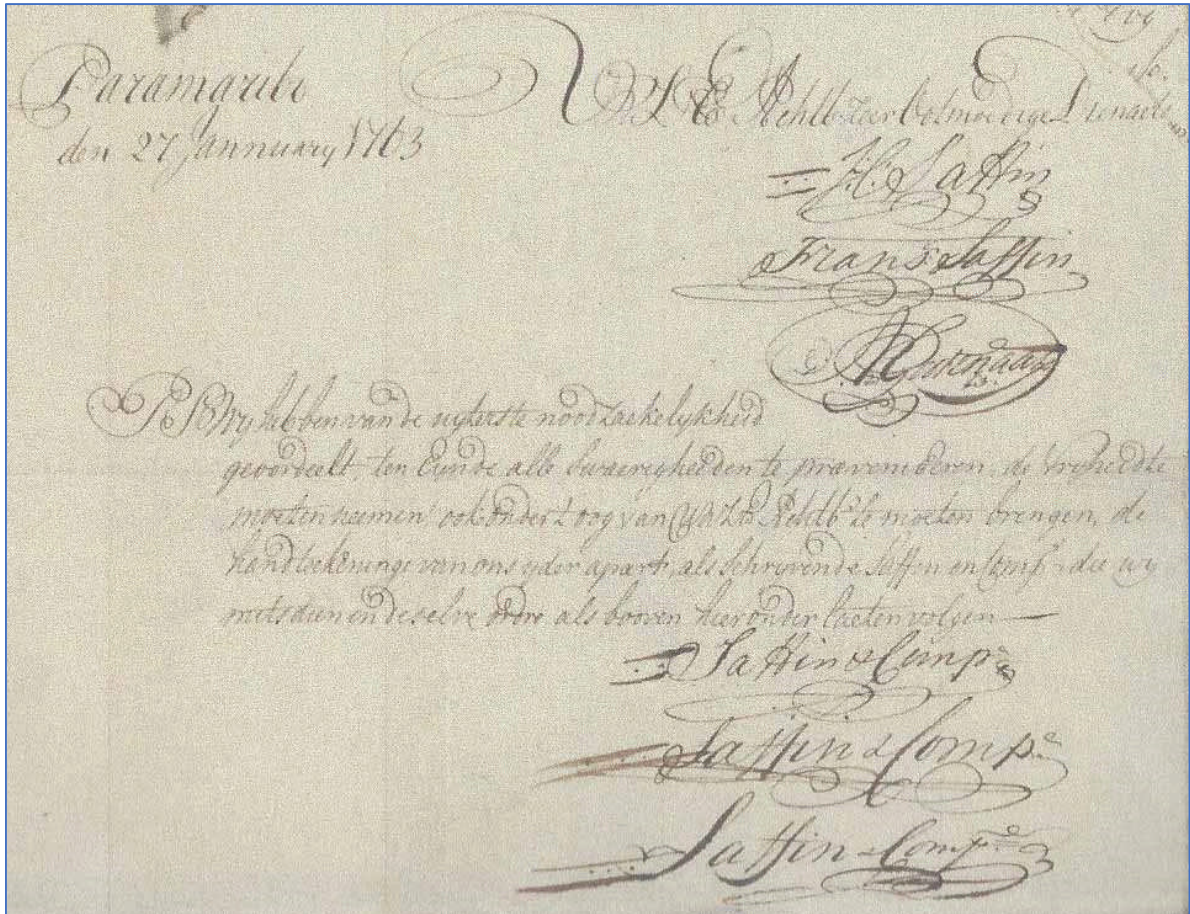 Paramaribo
den 27 Jannuary 1763
Zeer Dienaers
H: C: Saffin
Frans Saffin
PS Wy hebben van de uyterste noodzaekelykheid
geoordeelt, ten Eynde alle swaeregheeden te prævenieren, de vryheid te
moeten neemen ook onder 't oog van te moeten brengen, de
handteekeninge van ons yder apart, als schryvende Saffin en Compe die wy
mits deezen in deselve ordre als booven hier onder laeten volgen —
Saffin & Compe
Saffin & Compe
Saffin & Compe